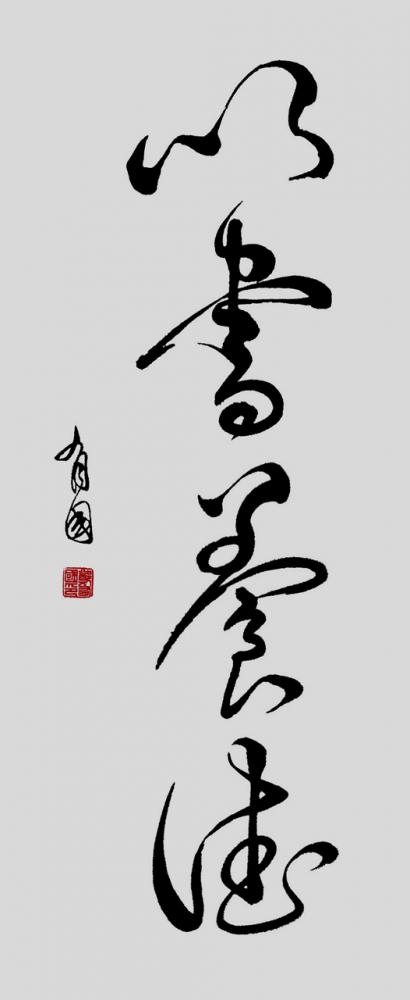 以書養德
有國